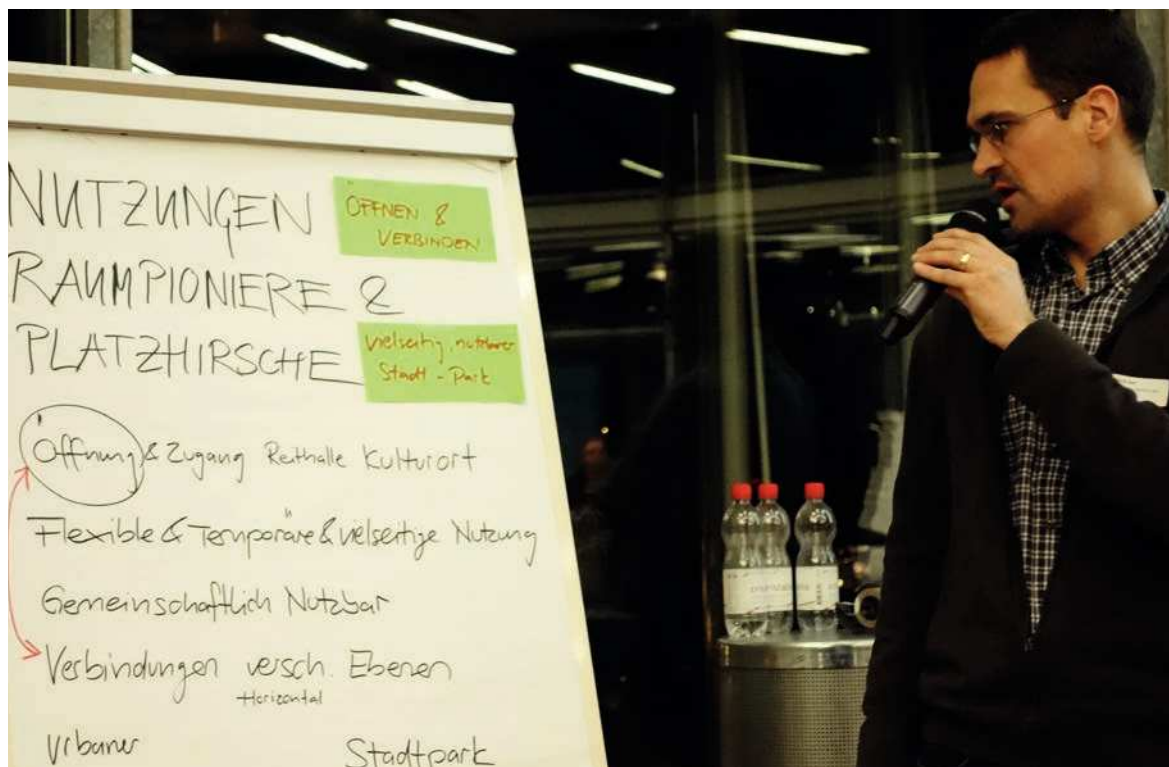 NUTZUNGEN
ÖFFNEN &
VERBINDEN
RAUMPIONIERE &
PLATZHIRSCHE
vielseitig nutzbarer
Stadt-Park
Öffnung & Zugang Reithalle Kulturort
Flexible & Temporäre & vielseitige Nutzung
Gemeinschaftlich Nutzbar
Verbindungen versch. Ebenen
Horizontal
Urbaner Stadtpark